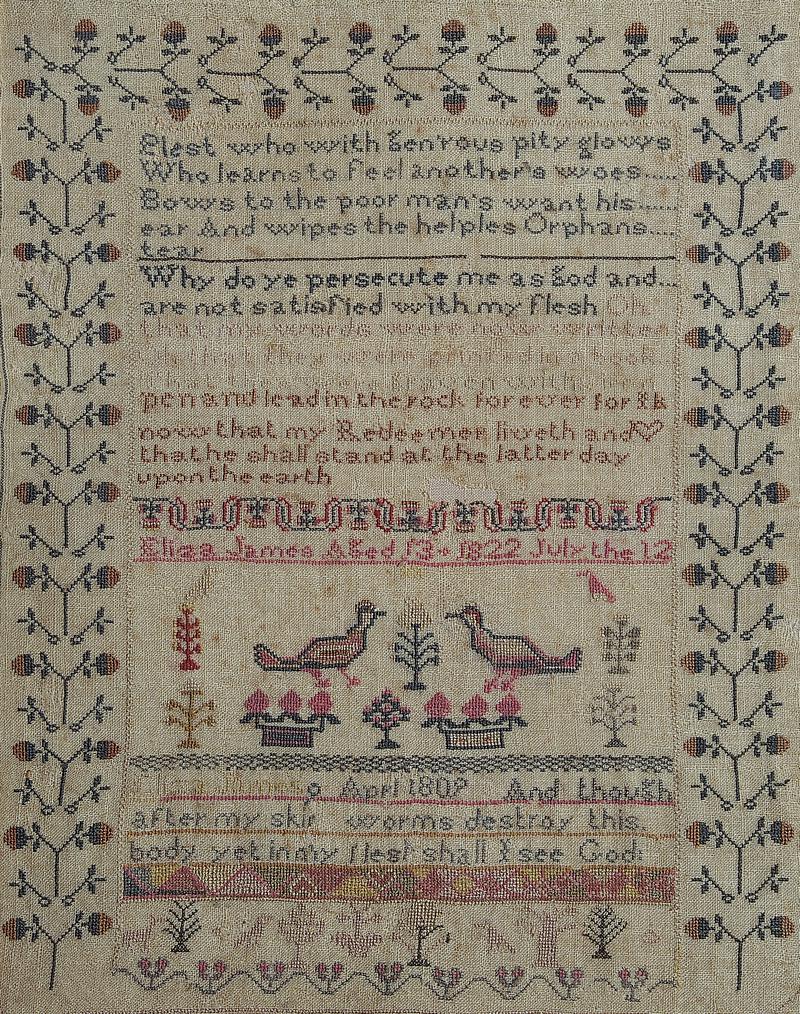 Blest who with Gen'rous pity glows
Who learns to feel another's woes......
Bows to the poor man's want his......
ear And wipes the helples Orphans....
tear
Why do ye persecute me as God and...
are not satisfied with my flesh Oh
that my words were now written
oh that they were printed in a book..
graven with
pen and lead in the rock for ever for I k
now that my Redeemer liveth and
that he shall stand at the latter day
upon the earth
Eliza James Aged 13 1822 July the 12
9 Aprl 1809 And though
after my skin worms destroy this
body yet in my flesh shall I see God: